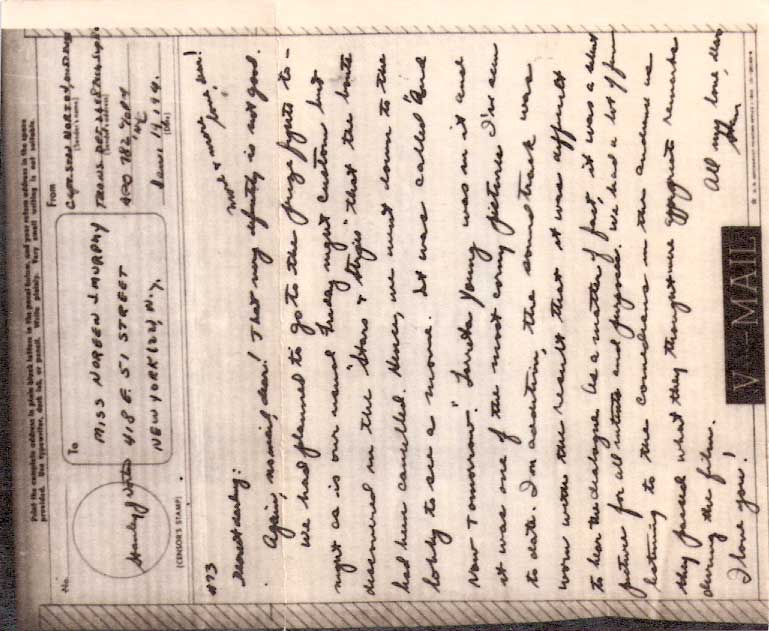 Print the complete address in plain block letters in the panel below, and your return address in the space
provided. Use typewriter, dark ink, or pencil. Write plainly. Very small writing is not suitable.
No.
To
From
MISS NOREEN J. MURPHY
418 E. 51 STREET
NEW YORK (22) N.Y.
(CENSOR'S STAMP)
(Sender's name)
(Sender's address)
APO 782 % PM
NYC
(Date)
#73
more & more love dear!
Dearest darling:
Again, no mail, dear! That may definitely is not good.
We had planned to go to the prize fights to-
night as is our usual Friday night custom but
discovered in the "Stars & Stripes" that the bouts
had been cancelled. Hence, we went down to the
lobby to see a movie. It was called "And
Now Tomorrow." Loretta Young was in it and
it was one of the most corny pictures I've seen
to date. In addition, the sound track was
worn with the result that it was difficult
to hear the dialogue. As a matter of fact, it was a silent
picture for all intents and purposes. We had a lot of fun
listening to the comedians in the audience as
they passed what they thought were appropriate remarks
during the film.
I love you!
All my love, dear
V-MAIL